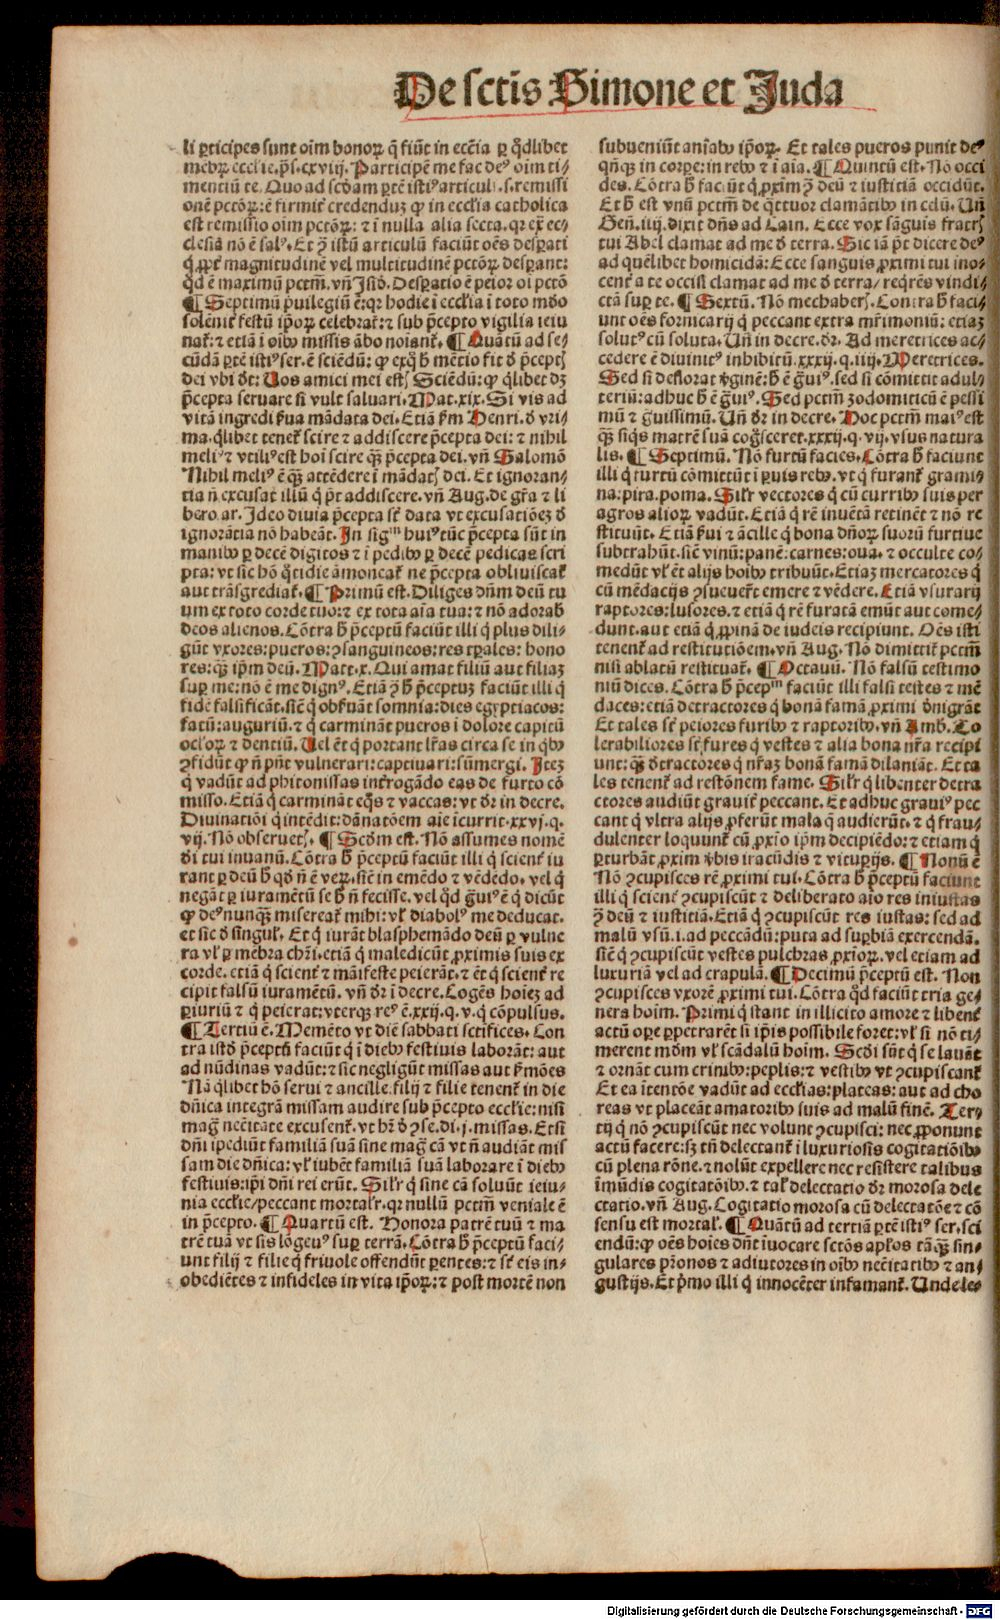 De sctīs Simone et Juda
li ꝑticipes sunt oīm bonoꝝ q̇ fiūt in eccīa ꝑ q̇dlibet
mēbꝝ eccl̄ie. p̄s. cxviij. Participē me fac deꝰ oīm ti⸗
mentiū te. Quo ad scḋam ꝑtē istiꝰ articuli. s. remissi
onē pctōꝝ: ē firmit̄ credenduz ꝙ in eccl̄ia catholica
est remissio oīm pctōꝝ: ⁊ ī nulla alia secta. qꝛ ex̄ ec⸗
clesiā nō ē salꝰ. Et ↄ̄ istū articulū faciūt oēs desꝑati
q̇ ꝓpt̄ magnitudinē vel multitudinē pctōꝝ desꝑant:
q̇d ē maximū pctm̄. vn̄ Jsid. Desꝑatio ē peior oī pctō
¶ Septimū p̄uilegiū ē: qꝛ hodie ī eccl̄ia ī toto mūdo
solenit̄ festū ip̄oꝝ celebrat̄: ⁊ sub p̄cepto vigilia ieiu
nat̄: ⁊ etiā ī oībꝰ missis ābo noīant̄. ¶ Quātū ad se⸗
cūdā ꝑtē istiꝰ ser. ē sciēdū: ꝙ exq̇ h̄ mētio fit de p̄ceptꝭ
dei vbi dr̄: Vos amici mei estꝭ Sciēdū: ꝙ q̇libet dꝫ
p̄cepta seruare si vult saluari. Mat. xix. Si vis ad
vitā ingredi ẜua mādata dei. Etiā ẜm Henri. de vri⸗
ma. q̇libet tenet̄ scire ⁊ addiscere p̄cepta dei: ⁊ nihil
meliꝰ ⁊ vtiliꝰ est hoī scire qͣꝫ p̄cepta dei. vn̄ Salomō
Nihil meliꝰ ē qͣꝫ attēdere ī mādatꝭ dei. Et ignoran⸗
tia n̄ excusat illū q̇ p̄t addiscere. vn̄ Aug. de gr̄a ⁊ li
bero ar. Jdeo diuīa p̄cepta st̄ data vt excusatiōeꝫ de
ignorātia nō habeāt. Jn sigᵐ huiꝰ tūc p̄cepta sūt in
manibꝰ ꝑ decē digitos ⁊ ī pedibꝰ ꝑ decē pedicas scri
pta: vt sic hō q̇tidie āmoneat̄ ne p̄cepta obliuiscat̄
aut trāsgrediat̄. ¶ Primū est. Diliges dn̄m deū tu
um ex toto corde tuo: ⁊ ex tota aīa tua: ⁊ nō adorab̄
deos alienos. Cōtra h̄ p̄ceptū faciūt illi q̇ plus dili⸗
gūt vxores: pueros: ↄsanguineos: res tꝑales: hono
res: qͣꝫ ip̄m deū. Matt. x. Qui amat filiū aut filiaꝫ
suꝑ me: nō ē me dignꝰ. Etiā ↄ̄ h̄ p̄ceptuꝫ faciūt illi q̇
fidē falsificāt. sic̄ q̇ obẜuāt somnia: dies egyptiacos:
fatū: auguriū. ⁊ q̇ carminant pueros ī dolore capitū
ocl̄oꝝ ⁊ dentiū. Vel et̄ q̇ portant lr̄as circa se in qͥbꝰ
ↄfidūt ꝙ n̄ pn̄t vulnerari: captiuari: sūmergi. Jteꝫ
q̇ vadūt ad phitonissas int̄rogādo eas de furto cō
misso. Etiā q̇ carmināt eqͦs ⁊ vaccas: vt dr̄ in decre.
Diuinatiōi q̇ intēdit: dānatōem aīe icurrit. xxvj. q.
vij. Nō obseruetꝭ. ¶ Secdm̄ est. Nō assumes nomē
dei tui inuanū. Cōtra h̄ p̄ceptū faciūt illi q̇ scient̄ iu
rant ꝑ deū h̄ qd̄ n̄ ē veꝝ. sic̄ in emēdo ⁊ vēdēdo. vel q̇
negāt ꝑ iuramētū se h̄ n̄ fecisse. vel q̇d g̈uiꝰ ē q̇ dicūt
ꝙ deꝰ nunqͣꝫ misereat̄ mihi: vl̄ diabolꝰ me deducat.
et sic de singul̄. Et q̇ iurāt blasphemādo deū ꝑ vulne
ra vl̄ ꝑ mēbra chr̄i. etiā q̇ maledicūt ꝓximis suis ex
corde. etiā q̇ scient̄ ⁊ māifeste peierāt. ⁊ et̄ q̇ scient̄ re
cipit falsū iuramētū. vn̄ dr̄ ī decre. Cogēs hoīeꝫ ad
ꝑiuriū ⁊ q̇ peierat: vterqꝫ reꝰ ē. xxij. q. v. q̇ cōpulsus.
¶ Tertiū ē. Memēto vt diē sabbati sctīfices. Con
tra istud p̄ceptū faciūt q̇ ī diebꝰ festiuis laborāt: aut
ad nūdinas vadūt: ⁊ sic negligūt missas aut ẜmōes
Nā q̇libet hō serui ⁊ ancille. filij ⁊ filie tenent̄ in die
dn̄ica integrā missam audire sub p̄cepto eccl̄ie: nisi
mag̈ nec̄itate excusent̄. vt hr̄ de ↄse. di. j. missas. Etsi
dn̄i ipediūt familiā suā sine mag̈ cā vt n̄ audiāt mis
sam die dn̄ica: vl̄ iubēt familiā suā laborare ī diebꝰ
festiuis: ip̄i dn̄i rei erūt. Silr̄ q̇ sine cā soluūt ieiu⸗
nia eccl̄ie/peccant mortalr̄. qꝛ nullū pctm̄ veniale ē
in p̄cepto. ¶ Quartū est. Honora patrē tuū ⁊ ma
trē tuā vt sis lōgeuꝰ suꝑ terrā. Cōtra h̄ p̄ceptū faci⸗
unt filij ⁊ filie q̇ friuole offendūt ꝑentes: ⁊ st̄ eis in⸗
obediētes ⁊ infideles in vita ip̄oꝝ: ⁊ post mortē non
subueniūt aniābꝰ ip̄oꝝ. Et tales pueros punit deꝰ
qn̄qꝫ in corpe: in rebꝰ ⁊ ī aīa. ¶ Quintū est. Nō occi
des. Cōtra h̄ faciūt q̇ ꝓxim̄ ↄ̄ deū ⁊ iustitiā occidūt.
Et h̄ est vnū pctm̄ de q̇ttuor clamātibꝰ in celū. Vn̄
Gen̄. iiij. dixit dn̄s ad Cain. Ecce vox sāguis fratrꝭ
tui Abel clamat ad me de terra. Sic iā p̄t dicere deꝰ
ad quēlibet homicidā: Ecce sanguis ꝓximi tui ino⸗
cent̄ a te occisi clamat ad me de terra/reqͥrēs vindi⸗
ctā suꝑ te. ¶ Sextū. Nō mechaberꝭ. Contra h̄ faci⸗
unt oēs fornicarij q̇ peccant extra mr̄imoniū: etiaꝫ
solutꝰ cū soluta. Vn̄ in decre. dr̄. Ad meretrices ac⸗
cedere ē diuinitꝰ inhibitū. xxxij. q. iiij. Meretrices.
Sed si deflorat v̄ginē: h̄ ē g̈uiꝰ. sed si cōmittit adul⸗
teriū: adhuc h̄ ē g̈uiꝰ. Sed pctm̄ zodomiticū ē pessi
mū ⁊ g̈uissimū. Vn̄ dr̄ in decre. Hoc pctm̄ maiꝰ est
qͣꝫ siqͥs matrē suā cog̈sceret. xxxij. q. vij. vsus natura
lis. ¶ Septimū. Nō furtū facies. Cōtra h̄ faciunt
illi q̇ furtū cōmittūt ī ꝑuis rebꝰ. vt q̇ furant̄ grami⸗
na: pira. poma. Silr̄ vectores q̇ cū curribꝰ suis per
agros alioꝝ vadūt. Etiā q̇ rē inuētā retinēt ⁊ nō re
stituūt. Etiā ẜui ⁊ ācille q̇ bona dn̄oꝝ suorū furtiue
subtrahūt. sic̄ vinū: panē: carnes: oua. ⁊ occulte co⸗
medūt vl̄ et̄ alijs hoībꝰ tribuūt. Etiaꝫ mercatores q̇
cū mēdacijs ↄsueuer̄t emere ⁊ vēdere. Etiā vsurarij
raptores: lusores. ⁊ etiā q̇ rē furatā emūt aut come⸗
dunt. aut etiā q̇ ꝓpinā de iudeis recipiunt. Oēs isti
tenent̄ ad restitutiōem. vn̄ Aug. Nō dimittit̄ pctm̄
nisi ablatū restituat̄. ¶ Octauū. Nō falsū testimo
niū dices. Cōtra h̄ p̄cepᵐ faciūt illi falsi testes ⁊ mē
daces: etiā detractores q̇ bonā famā ꝓximi denigrāt
Et tales st̄ peiores furibꝰ ⁊ raptoribꝰ. vn̄ Amb. To
lerabiliores st̄ fures q̇ vestes ⁊ alia bona nr̄a recipi
unt: qͣꝫ detractores q̇ nr̄aꝫ bonā famā dilaniāt. Et ta
les tenent̄ ad restōnem fame. Silr̄ q̇ libenter detra
ctores audiūt grauit̄ peccant. Et adhuc grauiꝰ pec
cant q̇ vltra alijs ꝓferūt mala q̄ audierūt. ⁊ q̇ frau⸗
dulenter loquunt̄ cū ꝓxīo ip̄m decipiēdo: ⁊ etiam q̇
ꝑturbāt ꝓxim̄ v̄bis iracūdis ⁊ vituꝑijs. ¶ Nonū ē
Nō ↄcupisces rē ꝓximi tui. Cōtra h̄ p̄ceptū faciunt
illi q̇ scient̄ ↄcupiscūt ⁊ deliberato aīo res iniustas
ↄ̄ deū ⁊ iustitiā. Etiā q̇ ↄcupiscūt res iustas: sed ad
malū vsū. i. ad peccādū: puta ad suꝑbiā exercendā.
sic̄ q̇ ↄcupiscūt vestes pulchras ꝓxīoꝝ. vel etiam ad
luxuriā vel ad crapulā. ¶ Decimū p̄ceptū est. Non
ↄcupisces vxorē ꝓximi tui. Cōtra q̇d faciūt tria ge⸗
nera hoīm. Primi q̇ stant in illicito amore ⁊ libent̄
actū oꝑe ꝑpetrarēt si ip̄is possibile foret: vl̄ si nō ti⸗
merent mūdm̄ vl̄ scādalū hoīm. Scdi sūt q̇ se lauāt
⁊ ornāt cum crinibꝰ: peplis: ⁊ vestibꝰ vt ↄcupiscant̄
Et ea ītentōe vadūt ad eccl̄ias: plateas: aut ad cho
reas vt placeāt amatoribꝰ suis ad malū finē. Ter⸗
tij q̇ nō ↄcupiscūt nec volunt ↄcupisci: nec ꝓponunt
actū facere: sꝫ tn̄ delectant̄ ī luxuriosis cogitatiōibꝰ
cū plena rōne. ⁊ nolūt expellere nec resistere talibus
īmūdis cogitatōibꝰ. ⁊ tal̄ delectatio dr̄ morosa dele
ctatio. vn̄ Aug. Cogitatio morosa cū delectatōe ⁊ cō
sensu est mortal̄. ¶ Quātū ad tertiā ꝑtē istiꝰ ser. sci
endū: ꝙ oēs hoīes dn̄t īuocare sctōs apl̄os tāqͣꝫ sin⸗
gulares pr̄onos ⁊ adiutores in oībꝰ nec̄itatibꝰ ⁊ an⸗
gustijs. Et p̄mo illi q̇ innocēter infamant̄. Vnde le⸗
Digitalisierung gefördert durch die Deutsche Forschungsgemeinschaft - DFG